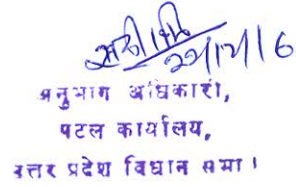 22/12/16
अनुभाग अधिकारी,
पटल कार्यालय,
उत्तर प्रदेश विधान सभा।